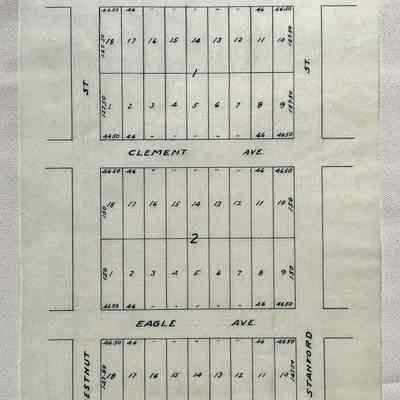 46.50 46 - - - - - 46 46.50
137.50 18 17 16 15 14 13 12 11 10 137.50
1
ST. ST.
137.50 1 2 3 4 5 6 7 8 9 137.50
46.50 46 - - - - - 46 46.50
CLEMENT AVE.
46.50 46 - - - - - 46 46.50
150 18 17 16 15 14 13 12 11 10 150
2
150 1 2 3 4 5 6 7 8 9 150
46.50 46 - - - - - 46 46.50
EAGLE AVE.
46.50 46 - - - - - 46 46.50
ESTNUT STANFORD
18 17 16 15 14 13 12 11 10